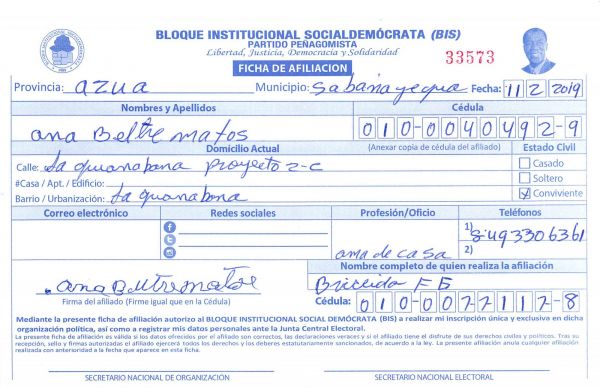 BLOQUE INSTITUCIONAL SOCIALDEMÓCRATA (BIS)
PARTIDO PEÑAGOMISTA
Libertad, Justicia, Democracia y Solidaridad
33573
FICHA DE AFILIACION
Provincia: azua Municipio: Sabana yegua Fecha: 11 2 2019
Nombres y Apellidos Cédula
ana Beltre matos 010-0040492-9
Domicilio Actual (Anexar copia de cédula del afiliado) Estado Civil
Calle: la guanabana proyecto 2-c Casado
#Casa / Apt. / Edificio: Soltero
Barrio / Urbanización: la guanabana Conviviente
Correo electrónico Redes sociales Profesión/Oficio Teléfonos
1) 8493306361
ama de casa 2)
Nombre completo de quien realiza la afiliación
ana Beltre matos Briceida
Firma del afiliado (Firme igual que en la Cédula) Cédula: 010-0077117-8
Mediante la presente ficha de afiliación autorizo al BLOQUE INSTITUCIONAL SOCIAL DEMÓCRATA (BIS) a realizar mi inscripción única y exclusiva en dicha
organización política, así como a registrar mis datos personales ante la Junta Central Electoral.
La presente ficha de afiliación es válida si los datos ofrecidos por el afiliado son correctos, las declaraciones veraces y si el afiliado tiene el disfrute de sus derechos civiles y políticos. Tras su
recepción, sello y firmas autorizadas el afiliado ejercerá todos los derechos y los deberes estatutariamente sancionados, de acuerdo a la ley. La presente afiliación anula cualquier afiliación
realizada con anterioridad a la fecha que aparece en esta ficha.
SECRETARIO NACIONAL DE ORGANIZACIÓN SECRETARIO NACIONAL ELECTORAL